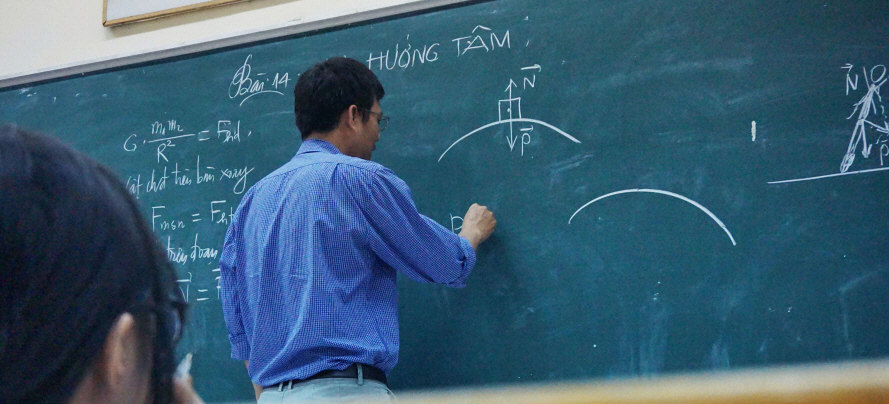 Bài 14 HƯỚNG TÂM
G. m₁m₂ / R² = Fhd
vật chất trên bàn xoay
Fmsn = Fht
trên đoạn
N =
N
P
P
N
P